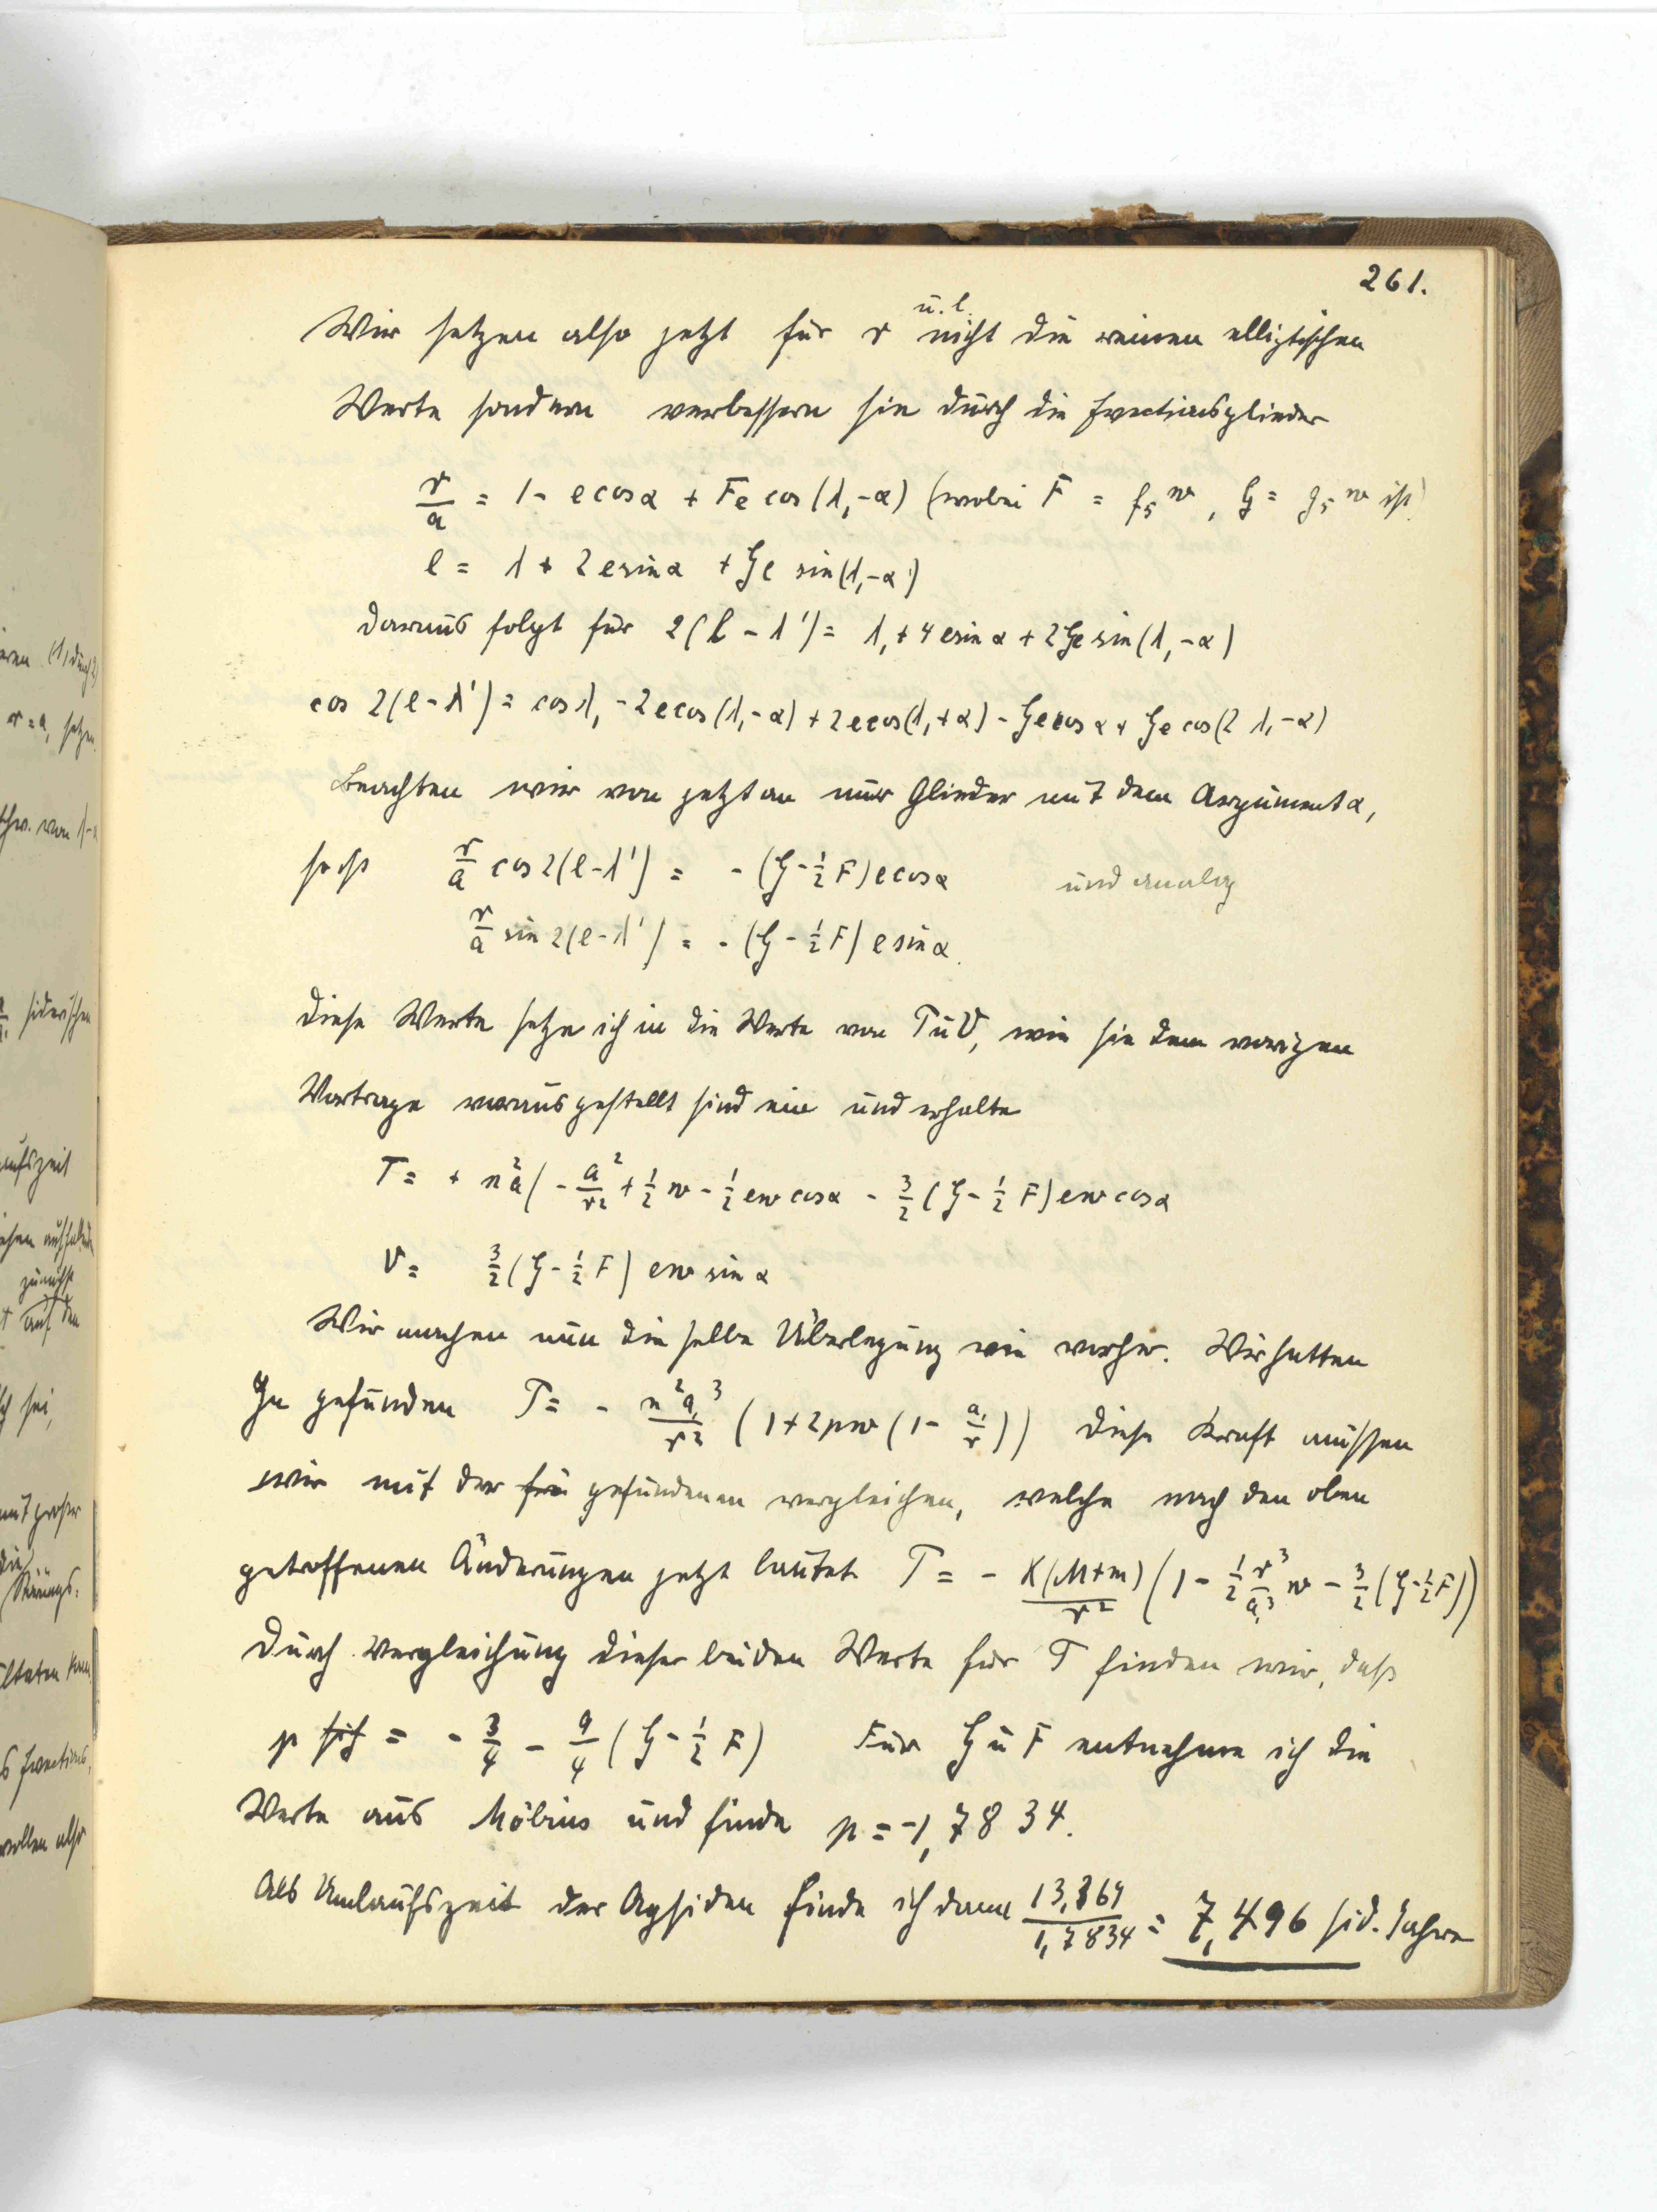 261.
Wir setzen also jetzt für r u. l. nicht die reinen elliptischen
Werte sondern verbessern sie durch die Evectionsglieder
r/a = 1 - e cos α + Fe cos (λ, - α) (wobei F = f₅ w, G = g₅ w ist)
l = λ + 2 e sin α + Ge sin (λ, - α)
Daraus folgt für 2(l - λ') = λ, + 4 e sin α + 2 Ge sin (λ, - α)
cos 2(l - λ') = cos λ, - 2 e cos (λ, - α) + 2 e cos (λ, + α) - Ge cos α + Ge cos (2 λ, - α)
Beachten wir von jetzt an nur Glieder mit dem Argument α,
so ist r/a cos 2(l - λ') = - (G - 1/2 F) e cos α und analog
r/a sin 2(l - λ') = - (G - 1/2 F) e sin α.
Diese Werte setze ich in die Werte von T u V, wie sie dem vorigen
Vortrage vorausgestellt sind ein und erhalte
T = + n² a ( - a²/r² + 1/2 w - 1/2 e w cos α - 3/2 (G - 1/2 F) e w cos α
V = 3/2 (G - 1/2 F) e w sin α
Wir machen nun die selbe Überlegung wie vorher. Wir hatten
Ja gefunden T = - n² a,³/r² (1 + 2 p w (1 - a,/r)) Diese Kraft müssen
wir mit der gefundenen vergleichen, welche nach den oben
getroffenen Änderungen jetzt lautet T = - K(M+m)/r² (1 - 1/2 r³/a,³ w - 3/2 (G - 1/2 F))
Durch Vergleichung dieser beiden Werte für T finden wir, daß
p = - 3/4 - 9/4 (G - 1/2 F) Für G u F entnehme ich die
Werte aus Möbius und finde p = -1,7834.
Als Umlaufszeit der Apsiden finde ich dann 13,369/1,7834 = 7,496 sid. Jahre